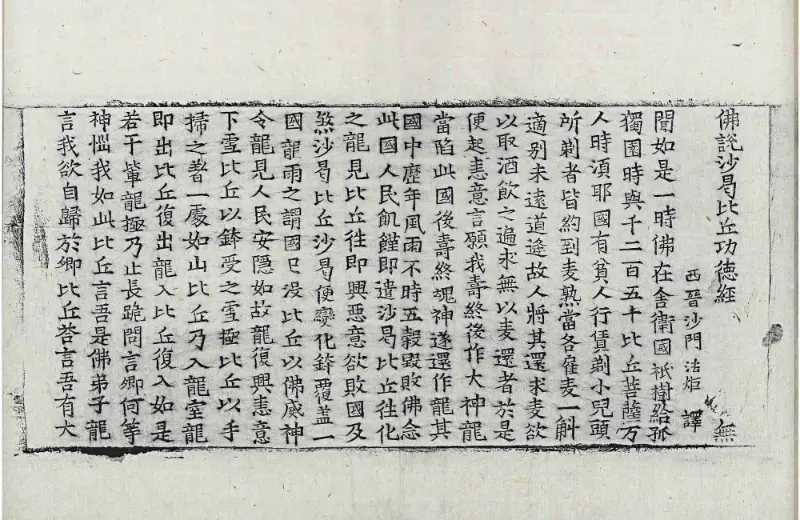 佛説沙曷比丘功德經 無
西晉沙門 法炬 譯
聞如是一時佛在舍衛國祇樹給孤
獨園時與千二百五十比丘菩薩万
人時湏耶國有貧人行賃剃小兒頭
所剃者皆約到麦熟當各雇麦一斛
適别未遠道逢故人將其還求麦欲
以取酒飲之遍求無以麦還者於是
便起恚意言願我壽終後作大神龍
當陷此國後壽終魂神遂還作龍其
國中歷年風雨不時五穀毀敗佛念
此國人民飢饉即遣沙曷比丘往化
之龍見比丘往即興惡意欲敗國及
煞沙曷比丘沙曷便變化鉢覆盖一
國龍雨之謂國已没比丘以佛威神
令龍見人民安隱如故龍復興恚意
下雪比丘以鉢受之雪極比丘以手
掃之著一處如山比丘乃入龍室龍
即出比丘復出龍入比丘復入如是
若干輩龍極乃止長跪問言卿何等
神惱我如此比丘言吾是佛弟子龍
言我欲自歸於卿比丘荅言吾有大